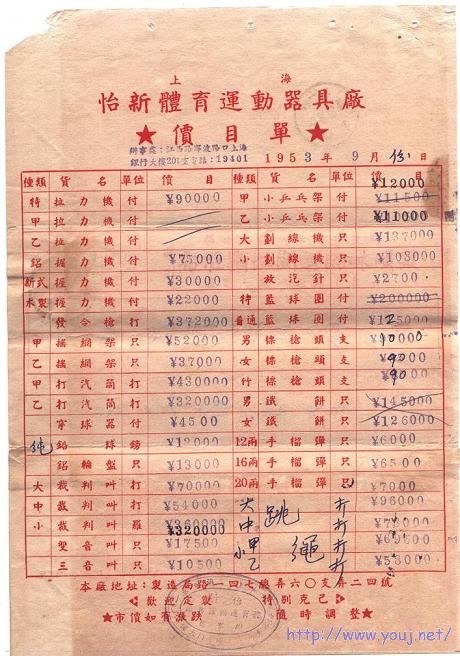 上海
怡新體育運動器具廠
★價目單★
辦事處：江西路寧波路口上海
銀行大樓201室電話：19401
1953年9月份日
種類 貨名 單位 價目 種類 貨名 單位 價目
特 拉力機 付 ¥90000 甲 小乒乓架 付 ¥12000 ¥11500
甲 拉力機 付 乙 小乒乓架 付 ¥11000
乙 拉力機 付 大 劃線機 只 ¥137000
鋁 握力機 付 ¥75000 小 劃線機 只 ¥108000
新式 握力機 付 ¥30000 放汽針 只 ¥2700
木製 握力機 付 ¥22000 特 籃球圈 付 ¥200000
發令槍 打 ¥372000 普通 籃球圈 付 ¥125000
甲 搖網架 只 ¥52000 男 標槍頭 支
乙 搖網架 只 ¥37000 女 標槍頭 支
甲 打汽筒 打 ¥430000 竹 標槍頭 支
乙 打汽筒 打 ¥320000 男 鐵餅 只 ¥145000
穿球器 付 ¥4500 女 鐵餅 只 ¥126000
鉛球 磅 ¥12000 12兩 手榴彈 只 ¥6000
鋁輪盤 只 ¥13000 16兩 手榴彈 只 ¥6500
大 裁判叫 打 ¥70000 20兩 手榴彈 只 ¥7000
中 裁判叫 打 ¥54000 大 跳 打 ¥96000
小 裁判叫 羅 ¥360000 ¥320000 中 打
雙音叫 只 ¥17500 小甲 繩 打
三音叫 只 ¥10500 乙 打 ¥53000
本廠地址：製造局路一二四七總弄六〇支弄二四號
歡迎定製 特別克己
★市價如有漲跌 隨時調整★
http://www.youj.net/